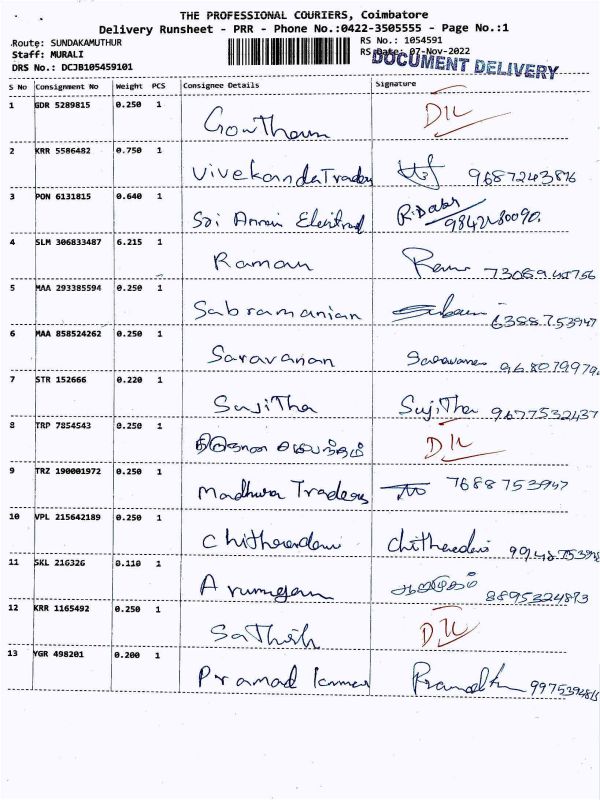 THE PROFESSIONAL COURIERS, Coimbatore
Delivery Runsheet - PRR - Phone No.:0422-3505555 - Page No.:1
Route: SUNDAKAMUTHUR RS No.: 1054591
Staff: MURALI RS Date: 07-Nov-2022
DRS No.: DCJB105459101 DOCUMENT DELIVERY
S No Consignment No Weight PCS Consignee Details Signature
1 GDR 5289815 0.250 1
Gowtham D/L
2 KRR 5586482 0.750 1
Vivekanda Traders 9687243876
3 PON 6131815 0.640 1
Sri Amman Electrical R.Babu
4 SLM 306833487 6.215 1
Raman Raman
5 MAA 293385594 0.250 1
Sabramanian 6388753947
6 MAA 858524262 0.250 1
Saravanan Saravanan 968079979
7 STR 152666 0.220 1
Sujitha Sujitha 9677532437
8 TRP 7854543 0.250 1
D/L
9 TRZ 190001972 0.250 1
Madhura Traders 7688753947
10 VPL 215642189 0.250 1
Chitharadavi Chitharadavi
11 SKL 216326 0.110 1
Arumugam ஆறுமுகம் 8895324813
12 KRR 1165492 0.250 1
Sathish D/L
13 YGR 498201 0.200 1
Pramod Kumar